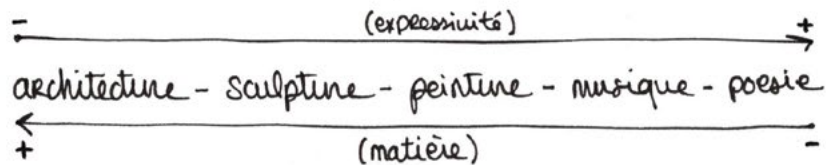 - (expressivité) +
architecture - sculpture - peinture - musique - poesie
+ (matière) -